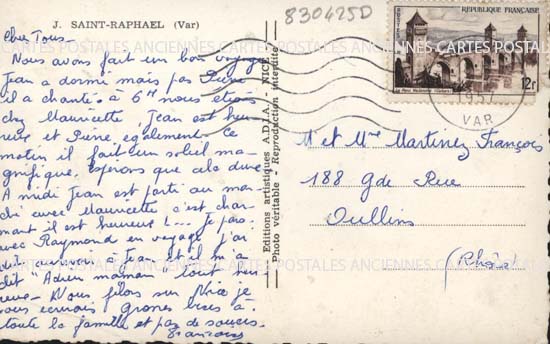 J. SAINT-RAPHAEL (Var)
830425D
Cher Tous-
Nous avons fait un bon voyage
Jean a dormi mais pas Pierre
il a chanté à 6h nous étions
chez Mauricette, Jean est heu
reuse et Pierre également. Ce
matin il fait un soleil ma-
gnifique. Espérons que cela dure
A midi Jean est parti au mar
ché avec Mauricette c'est char-
mant il est heureux !... Je pars
avec Raymond en voyage j'ai
dit aurevoir à Jean et il m'a
dit "Adieu maman", tout heu
reux - Nous filons sur Nice je
vous écrirais Grosses bises à
toute la famille et pas de soucis.
Françoise
Editions artistiques A.D.I.A. - NICE
Photo véritable - Reproduction interdite
POSTES
REPUBLIQUE FRANÇAISE
12f
1957
VAR
M et Mme Martinez François
188 Gde Rue
Oullins
(Rhône)
CARTES POSTALES ANCIENNES CARTES POSTALES ANCIENNES